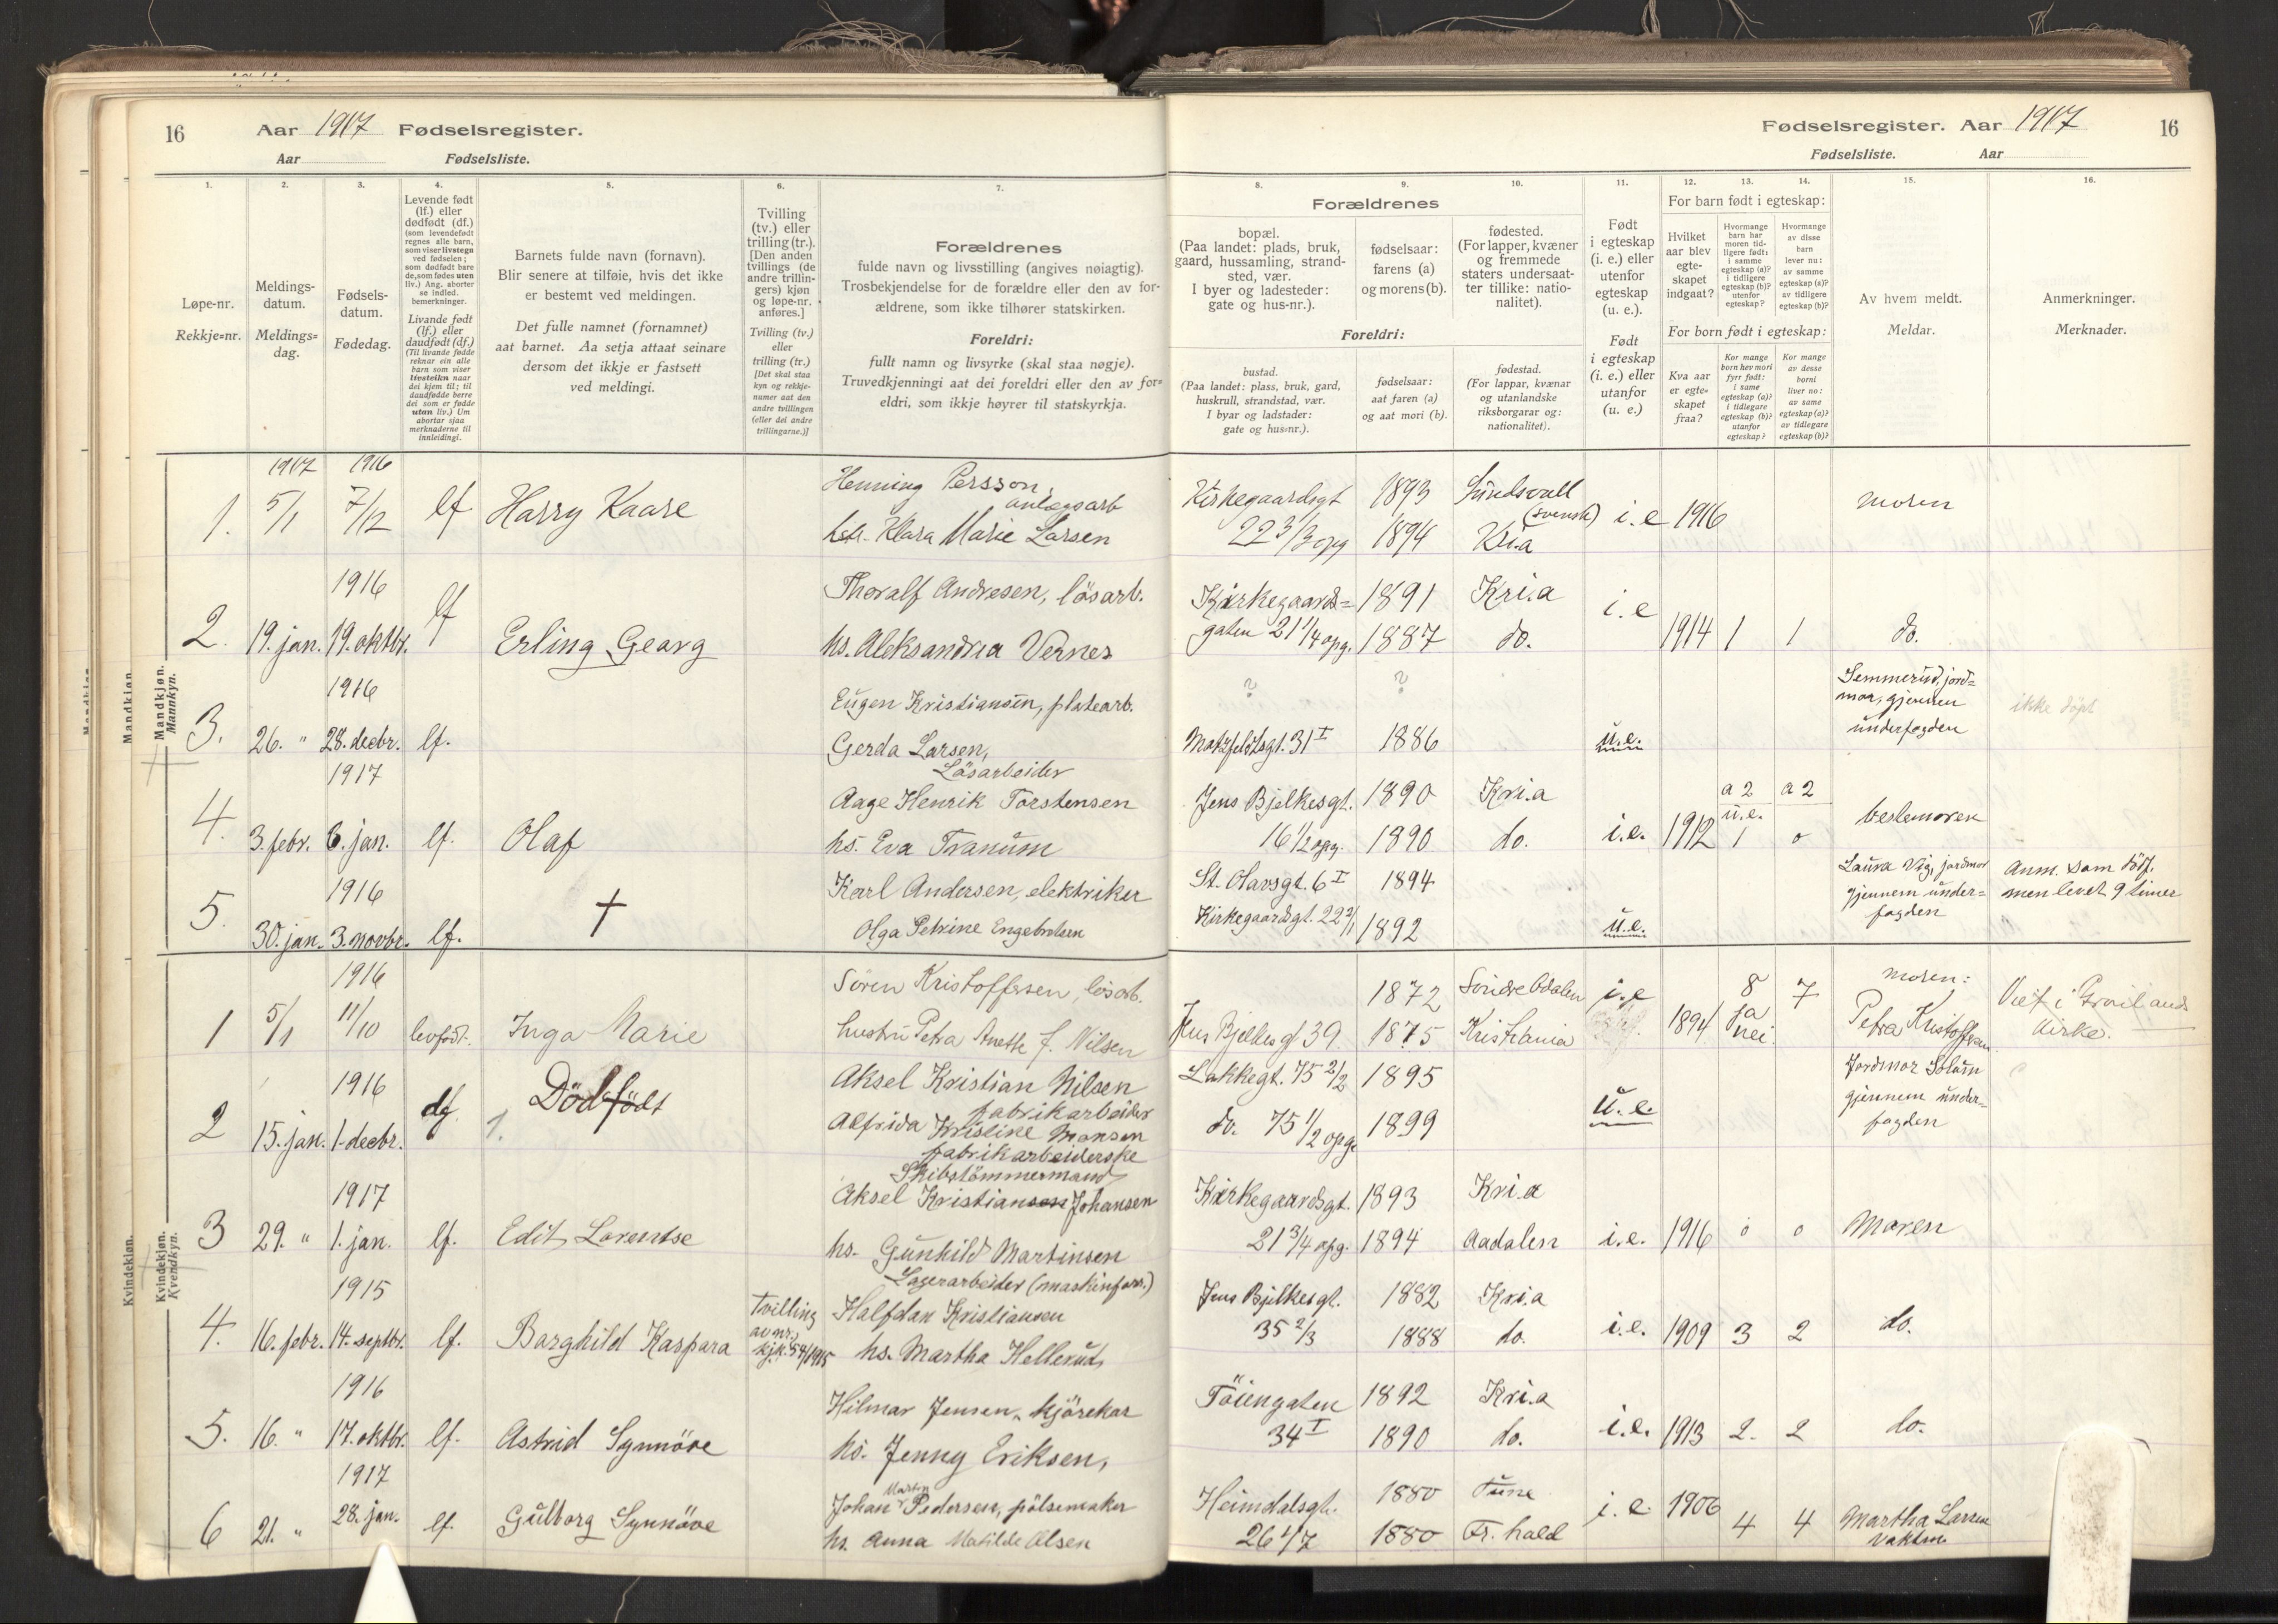 16 Aar 1917 Fødselsregister.
Aar Fødselsliste.
Fødselsregister. Aar 1917 16
Fødselsliste. Aar
1. 2. 3. 4. 5. 6. 7.
Løpe-nr.
Rekkje=nr.
Meldings-
datum.
Meldings=
dag.
Fødsels-
datum.
Fødedag.
Levende født
(lf.) eller
dødfødt (df.)
(som levendefødt
regnes alle barn,
som viser livstegn
ved fødselen;
som dødfødt bare
de, som fødes uten
liv.) Ang. aborter
se indled.
bemerkninger.
Livande født
(lf.) eller
daudfødt (df.)
(Til livande fødde
reknar ein alle
barn som viser
livsteikn naar
dei kjem til; til
daudfødde berre
dei som er fødde
utan liv.) Um
abortar sjaa
merknaderne til
innleidingi.
Barnets fulde navn (fornavn).
Blir senere at tilføie, hvis det ikke
er bestemt ved meldingen.
Det fulle namnet (fornamnet)
aat barnet. Aa setja attaat seinare
dersom det ikkje er fastsett
ved meldingi.
Tvilling
(tv.) eller
trilling (tr.).
[Den anden
tvillings (de
andre trillin-
gers) kjøn
og løpe-nr.
anføres.]
Tvilling (tv.)
eller
trilling (tr.)
[Det skal staa
kyn og rekkje-
numer aat den
andre tvillingen
(eller dei andre
trillingarne.)]
Forældrenes
fulde navn og livsstilling (angives nøiagtig).
Trosbekjendelse for de forældre eller den av for-
ældrene, som ikke tilhører statskirken.
Foreldri:
fullt namn og livsyrke (skal staa nøgje).
Truvedkjenningi aat dei foreldri eller den av for=
eldri, som ikkje høyrer til statskyrkja.
8. 9. 10. 11. 12. 13. 14. 15. 16.
Forældrenes
bopæl.
(Paa landet: plads, bruk,
gaard, hussamling, strand-
sted, vær.
I byer og ladesteder:
gate og hus-nr.).
fødselsaar:
farens (a)
og morens (b).
fødested.
(For lapper, kvæner
og fremmede
staters undersaat-
ter tillike: natio-
nalitet).
Foreldri:
bustad.
(Paa landet: plass, bruk, gard,
huskrull, strandstad, vær.
I byar og ladstader:
gate og hus=nr.).
fødselsaar:
aat faren (a)
og aat mori (b).
fødestad.
(For lappar, kvænar
og utanlandske
riksborgarar og:
nationalitet).
Født
i egteskap
(i. e.) eller
utenfor
egteskap
(u. e.).
Født
i egteskap
(i. e.) eller
utanfor
(u. e.)
For barn født i egteskap:
Hvilket
aar blev
egte-
skapet
indgaat?
Hvormange
barn har
moren tid-
ligere født:
i samme
egteskap (a)?
i tidligere
egteskap (b)?
utenfor
egteskap?
Hvormange
av disse
barn
lever nu:
av samme
egteskap (a)?
av tidligere
egteskap (b)?
For born født i egteskap:
Kva aar
er egte-
skapet
fraa?
Kor mange
born hev mori
fyrr født:
i same
egteskap (a)?
i tidlegare
egteskap (b)?
utanfor
egteskap?
Kor mange
av desse
borni
liver no:
av same
egteskap (a)?
av tidlegare
egteskap (b)?
Av hvem meldt.
Meldar.
Anmerkninger.
Merknader.
Mandkjøn.
Mannkyn.
1917 1916
1. 5/1 7/12 lf Harry Kaare
Henning Persson,
anlægsarb
Klara Marie Larsen
Kirkegaardsgt 1893 Sundsvall
(svensk)
22 3/3 opg 1894 Kr.a
i.e 1916 moren
1916
2. 19. jan. 19. oktbr. lf Erling Georg
Thoralf Andresen, løsarb.
hs. Aleksandra Vernes
Kirkegaards= 1891 Kri.a
gaten 21 1/4 opg. 1887 do.
i.e 1914 1 1 do.
1916
3. 26. " 28. decbr. lf.
Eugen Kristiansen, platearb.
Gerda Larsen,
? ?
Motzfeldtsgt. 31 I 1886 u.e.
Semmerud, jord=
mor, gjennem
underfogden
ikke døpt
1917
4. 3. febr. 6. jan. lf. Olaf
Løsarbeider
Aage Henrik Torstensen
hs. Eva Tranum
Jens Bjelkesgt. 1890 Kri.a
16 1/2 opg. 1890 do.
i.e. 1912 a 2 a 2
u.e.
1 0
bestemoren
1916
5. 30. jan. 3. novbr. lf. †
Karl Andersen, elektriker
Olga Petrine Engebretsen
St. Olavsgt. 6 I 1894
Kirkegaardsgt. 22 2/1 1892
u.e.
Laura Vig, jordmor
gjennem under=
fogden
Anm. som dödf.
men levet 9 timer
Kvindekjøn.
Kvendkyn.
1916
1 5/1 11/10 levfödt. Inga Marie
Sören Kristoffersen, løsarb.
hustru Petra Anette f. Nilsen
1872 Söndre Odalen
Jens Bjelkesgt 39 1875 Kristiania
i.e 1894 8 7
ja
nei
moren:
Petra Kristoffersen
kirke.
1916
2 15. jan. 1. decbr. df. 1. Dödfödt
Aksel Kristian Nilsen
fabrikarbeider
Alfrida Kristine Monsen
fabrikarbeiderske
Lakkegt. 75 2/2 1895
do. 75 1/2 opg. 1899
u.e.
Jordmor Solum
gjennem under=
fogden
1917
3 29. " 1. jan. lf. Edit Lorentse
Skibstömmermand
Aksel Kristiansen Johansen
hs. Gunhild Martinsen
Kirkegaardsgt. 1893 Kri.a
21 3/4 opg. 1894 Aadalen
i.e. 1916 0 0 Moren
1915
4. 16. febr. 14. septbr. lf. Borghild Kaspara
Tvilling
av nr.
kjk. 54/1915
Lagerarbeider (maskinforr.)
Halfdan Kristiansen
hs. Martha Hellerud
Jens Bjelkesgt. 1882 Kri.a
35 2/3 1888 do.
i.e. 1909 3 2 do.
1916
5. 16. " 17. oktbr. lf. Astrid Synnöve
Hilmar Jensen, kjörekar
hs. Jenny Eriksen,
Töiengaten 1892 Kri.a
34 I 1890 do.
i.e. 1913 2. 2 do.
1917
6 21. " 28. jan. lf. Gulborg Synnöve
Martin
Johan Pedersen, pölsemaker
hs. Anna Matilde Olsen
Heimdalsgt. 1880 Tune
26 1/7 1880 Fr. hald
i.e 1906 4 4
Martha Larsen
vaktm.